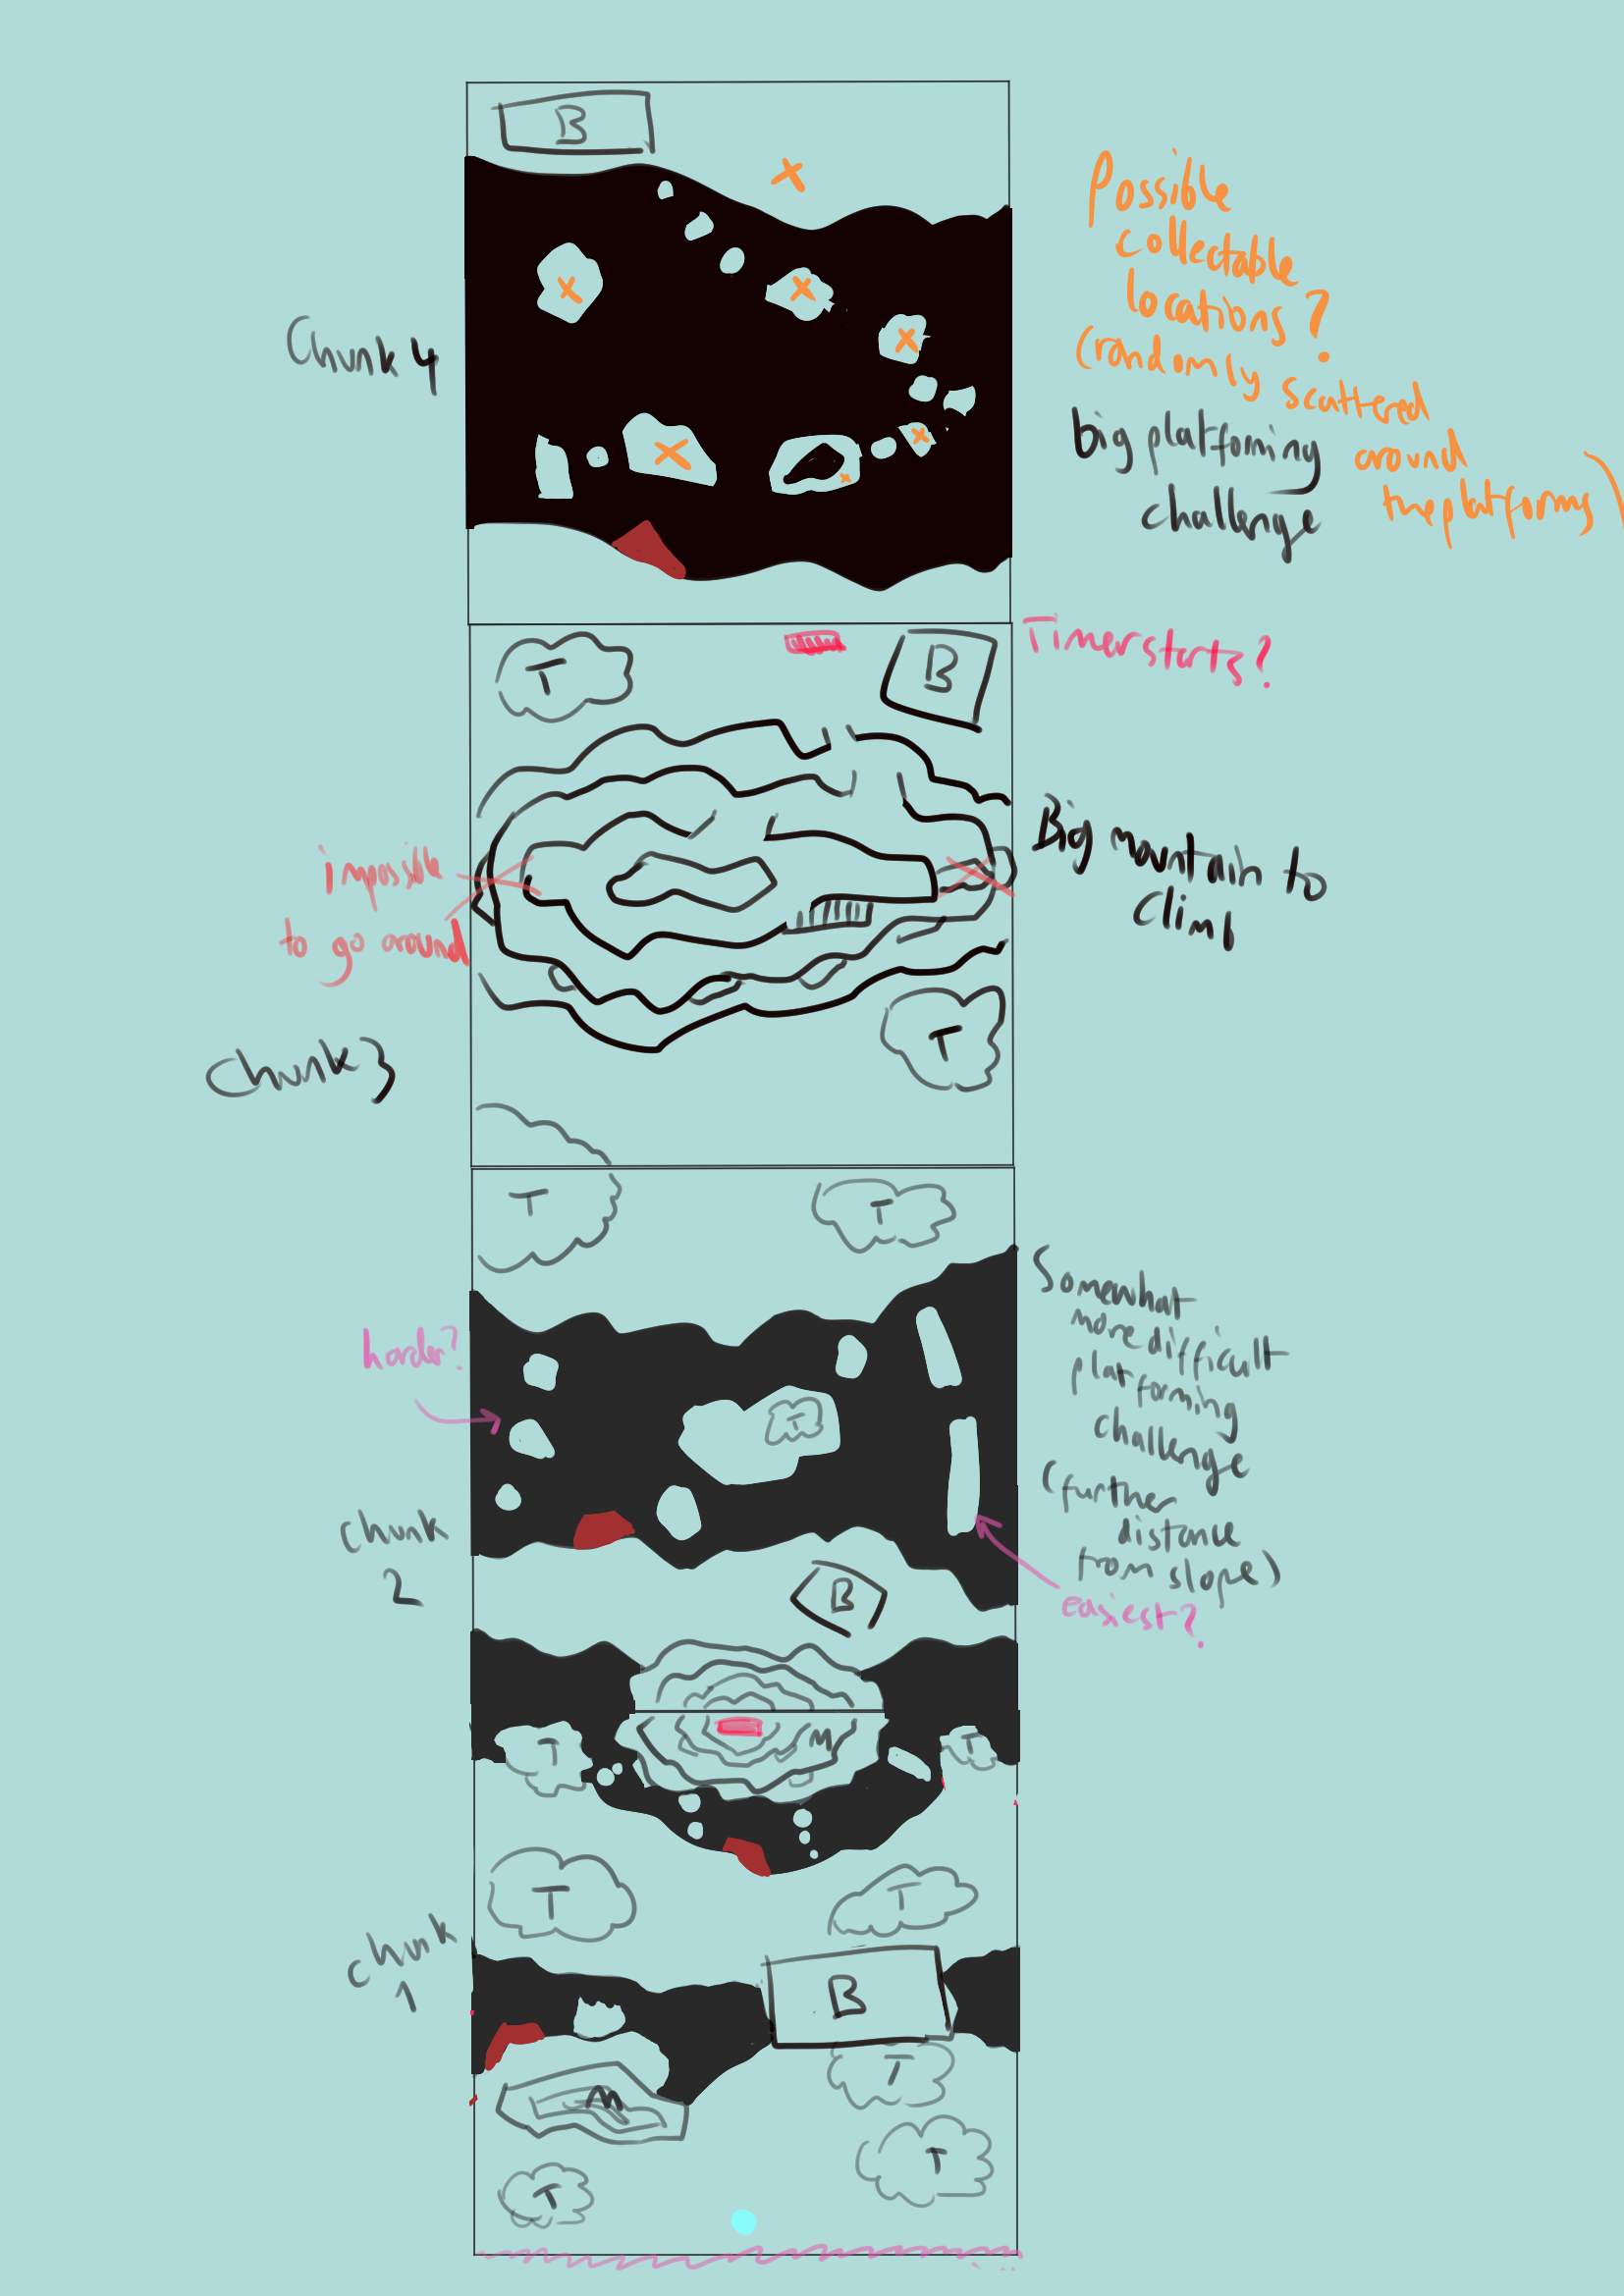 B
Possible
collectable
locations?
(randomly scattered
around
the platforms)
Chunk 4
big platforming
challenge
Timer starts?
T
B
impssible
to go around
Big mountain to
Climb
T
Chunk 3
T
T
Somewhat
more difficult
platforming
challenge
(further
distance
from slope)
harder?
T
chunk
2
easiest?
B
M
T
T
T
T
chunk
1
B
T
M
T
T